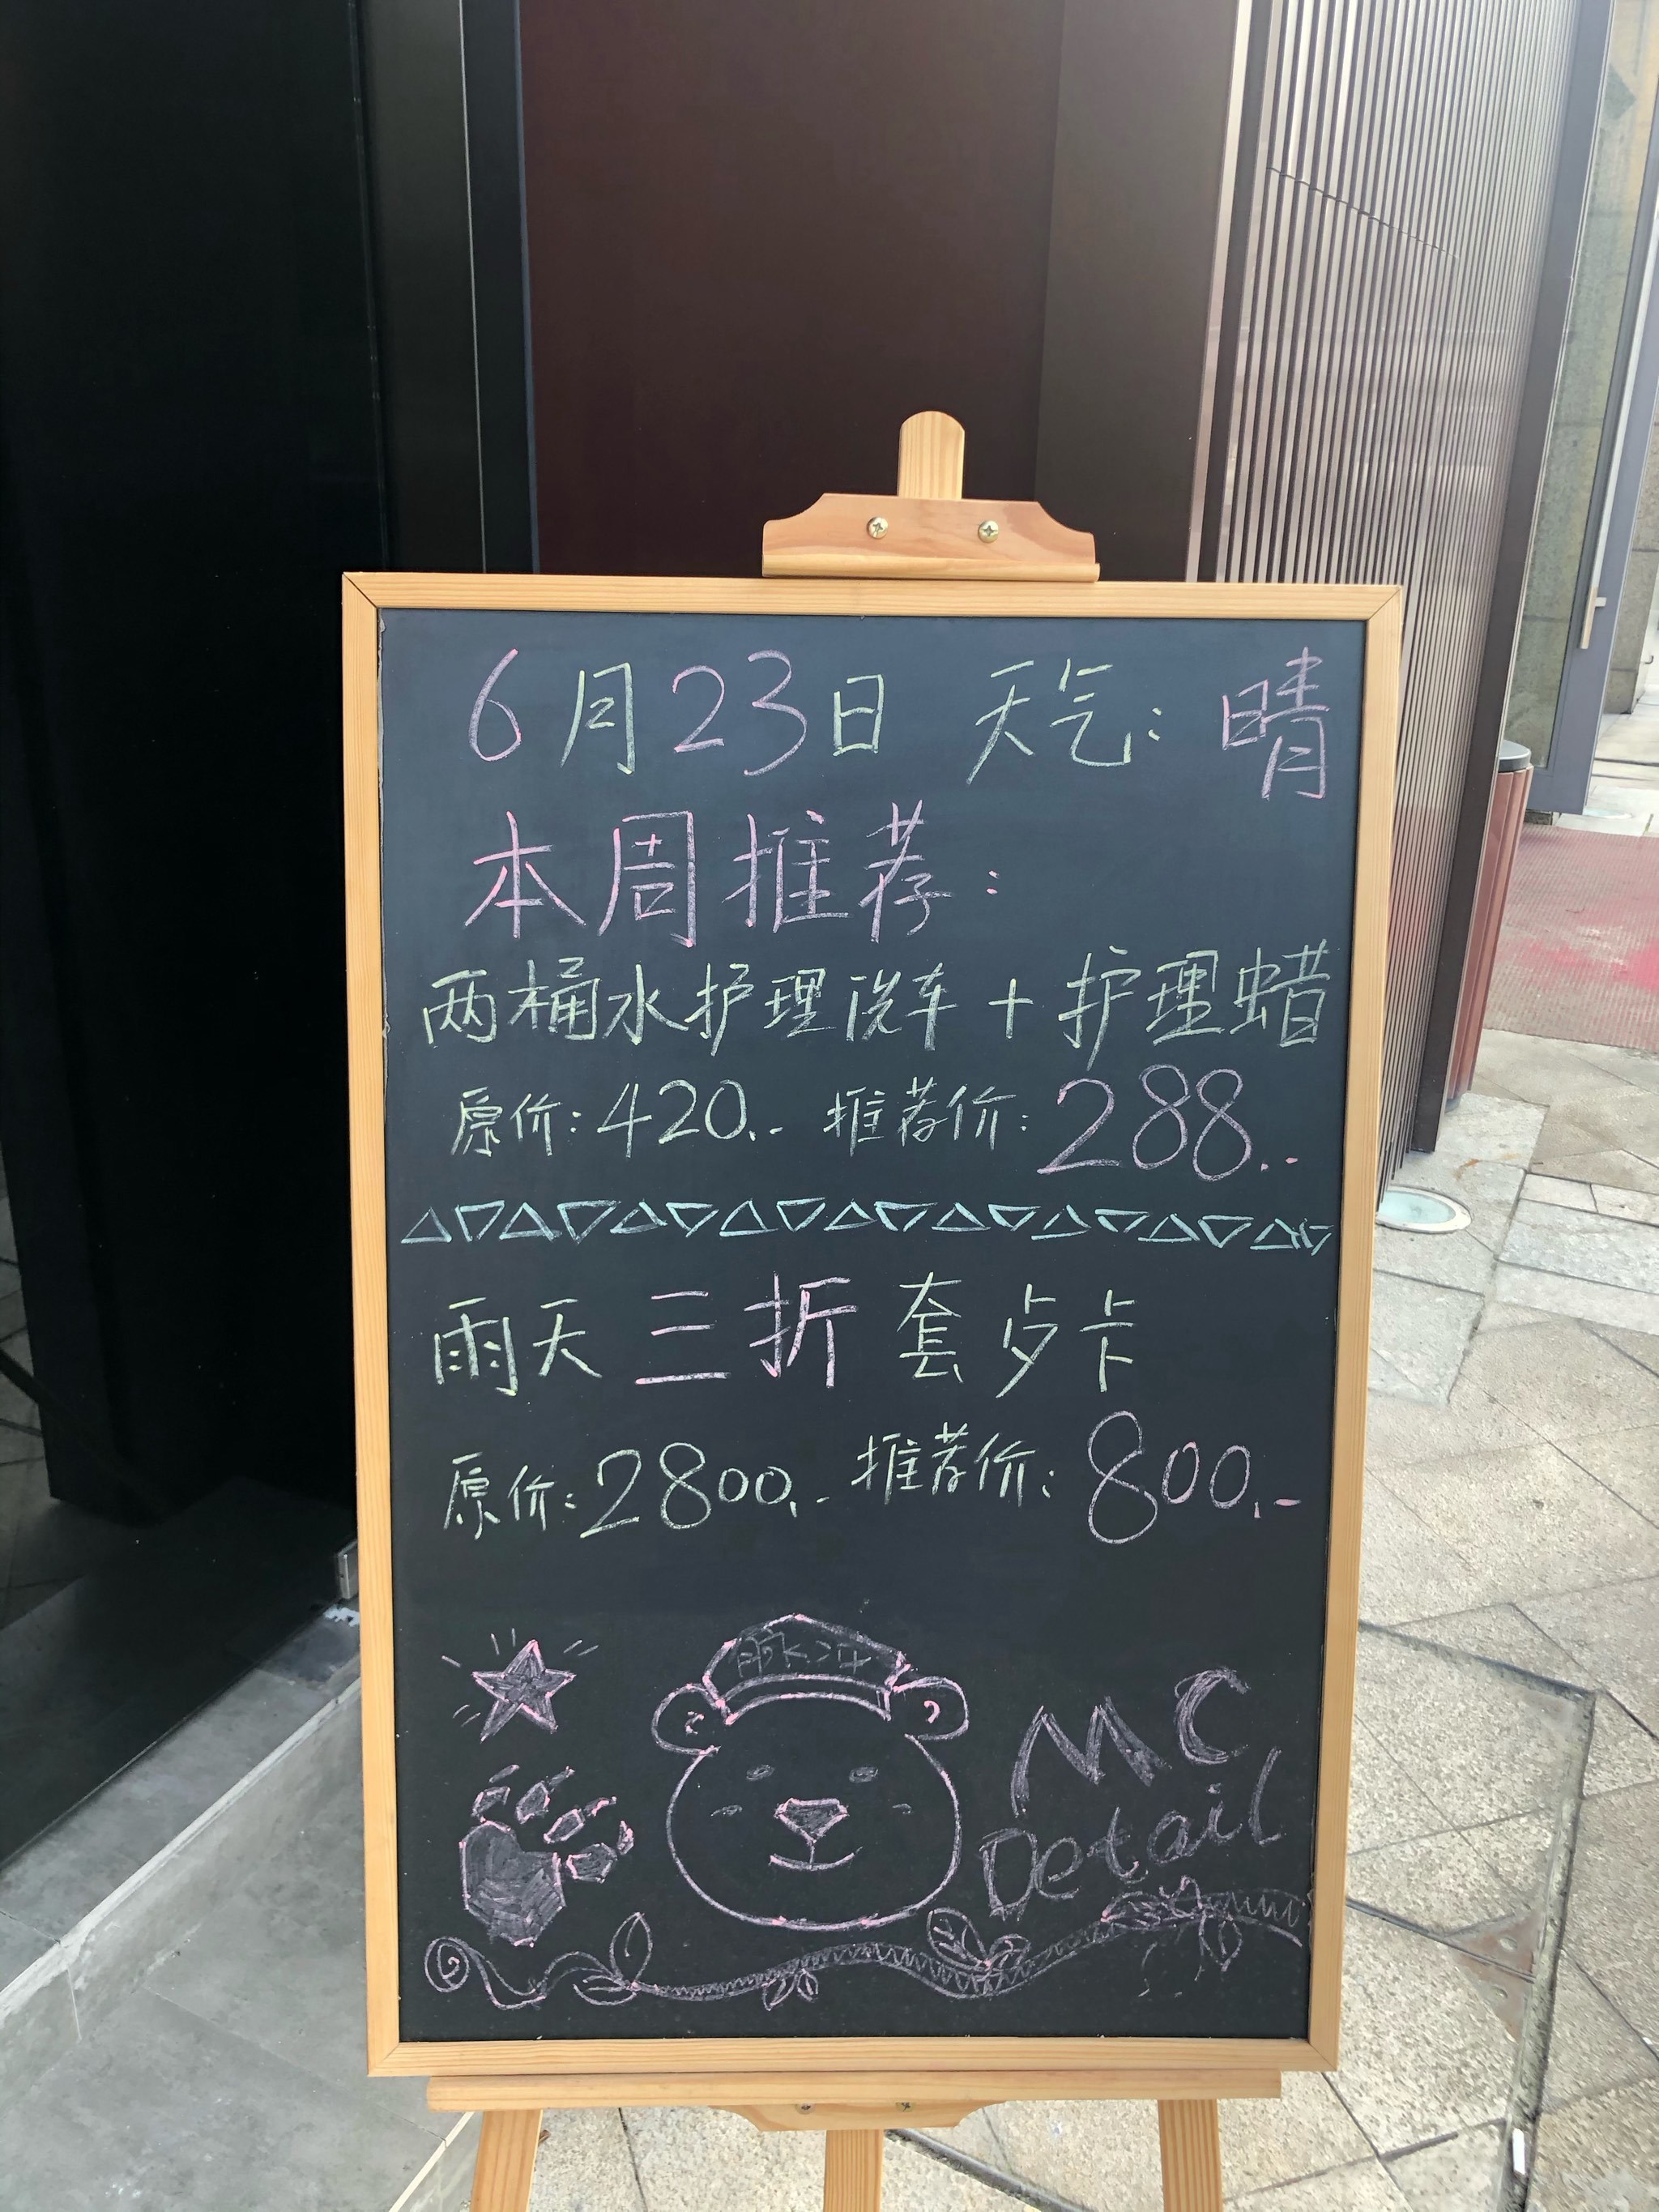 6月23日 天气：晴
本周推荐：
两桶水护理洗车＋护理蜡
原价：420.- 推荐价：288.-
雨天三折套歺卡
原价：2800.- 推荐价：800.-
MC
Detail